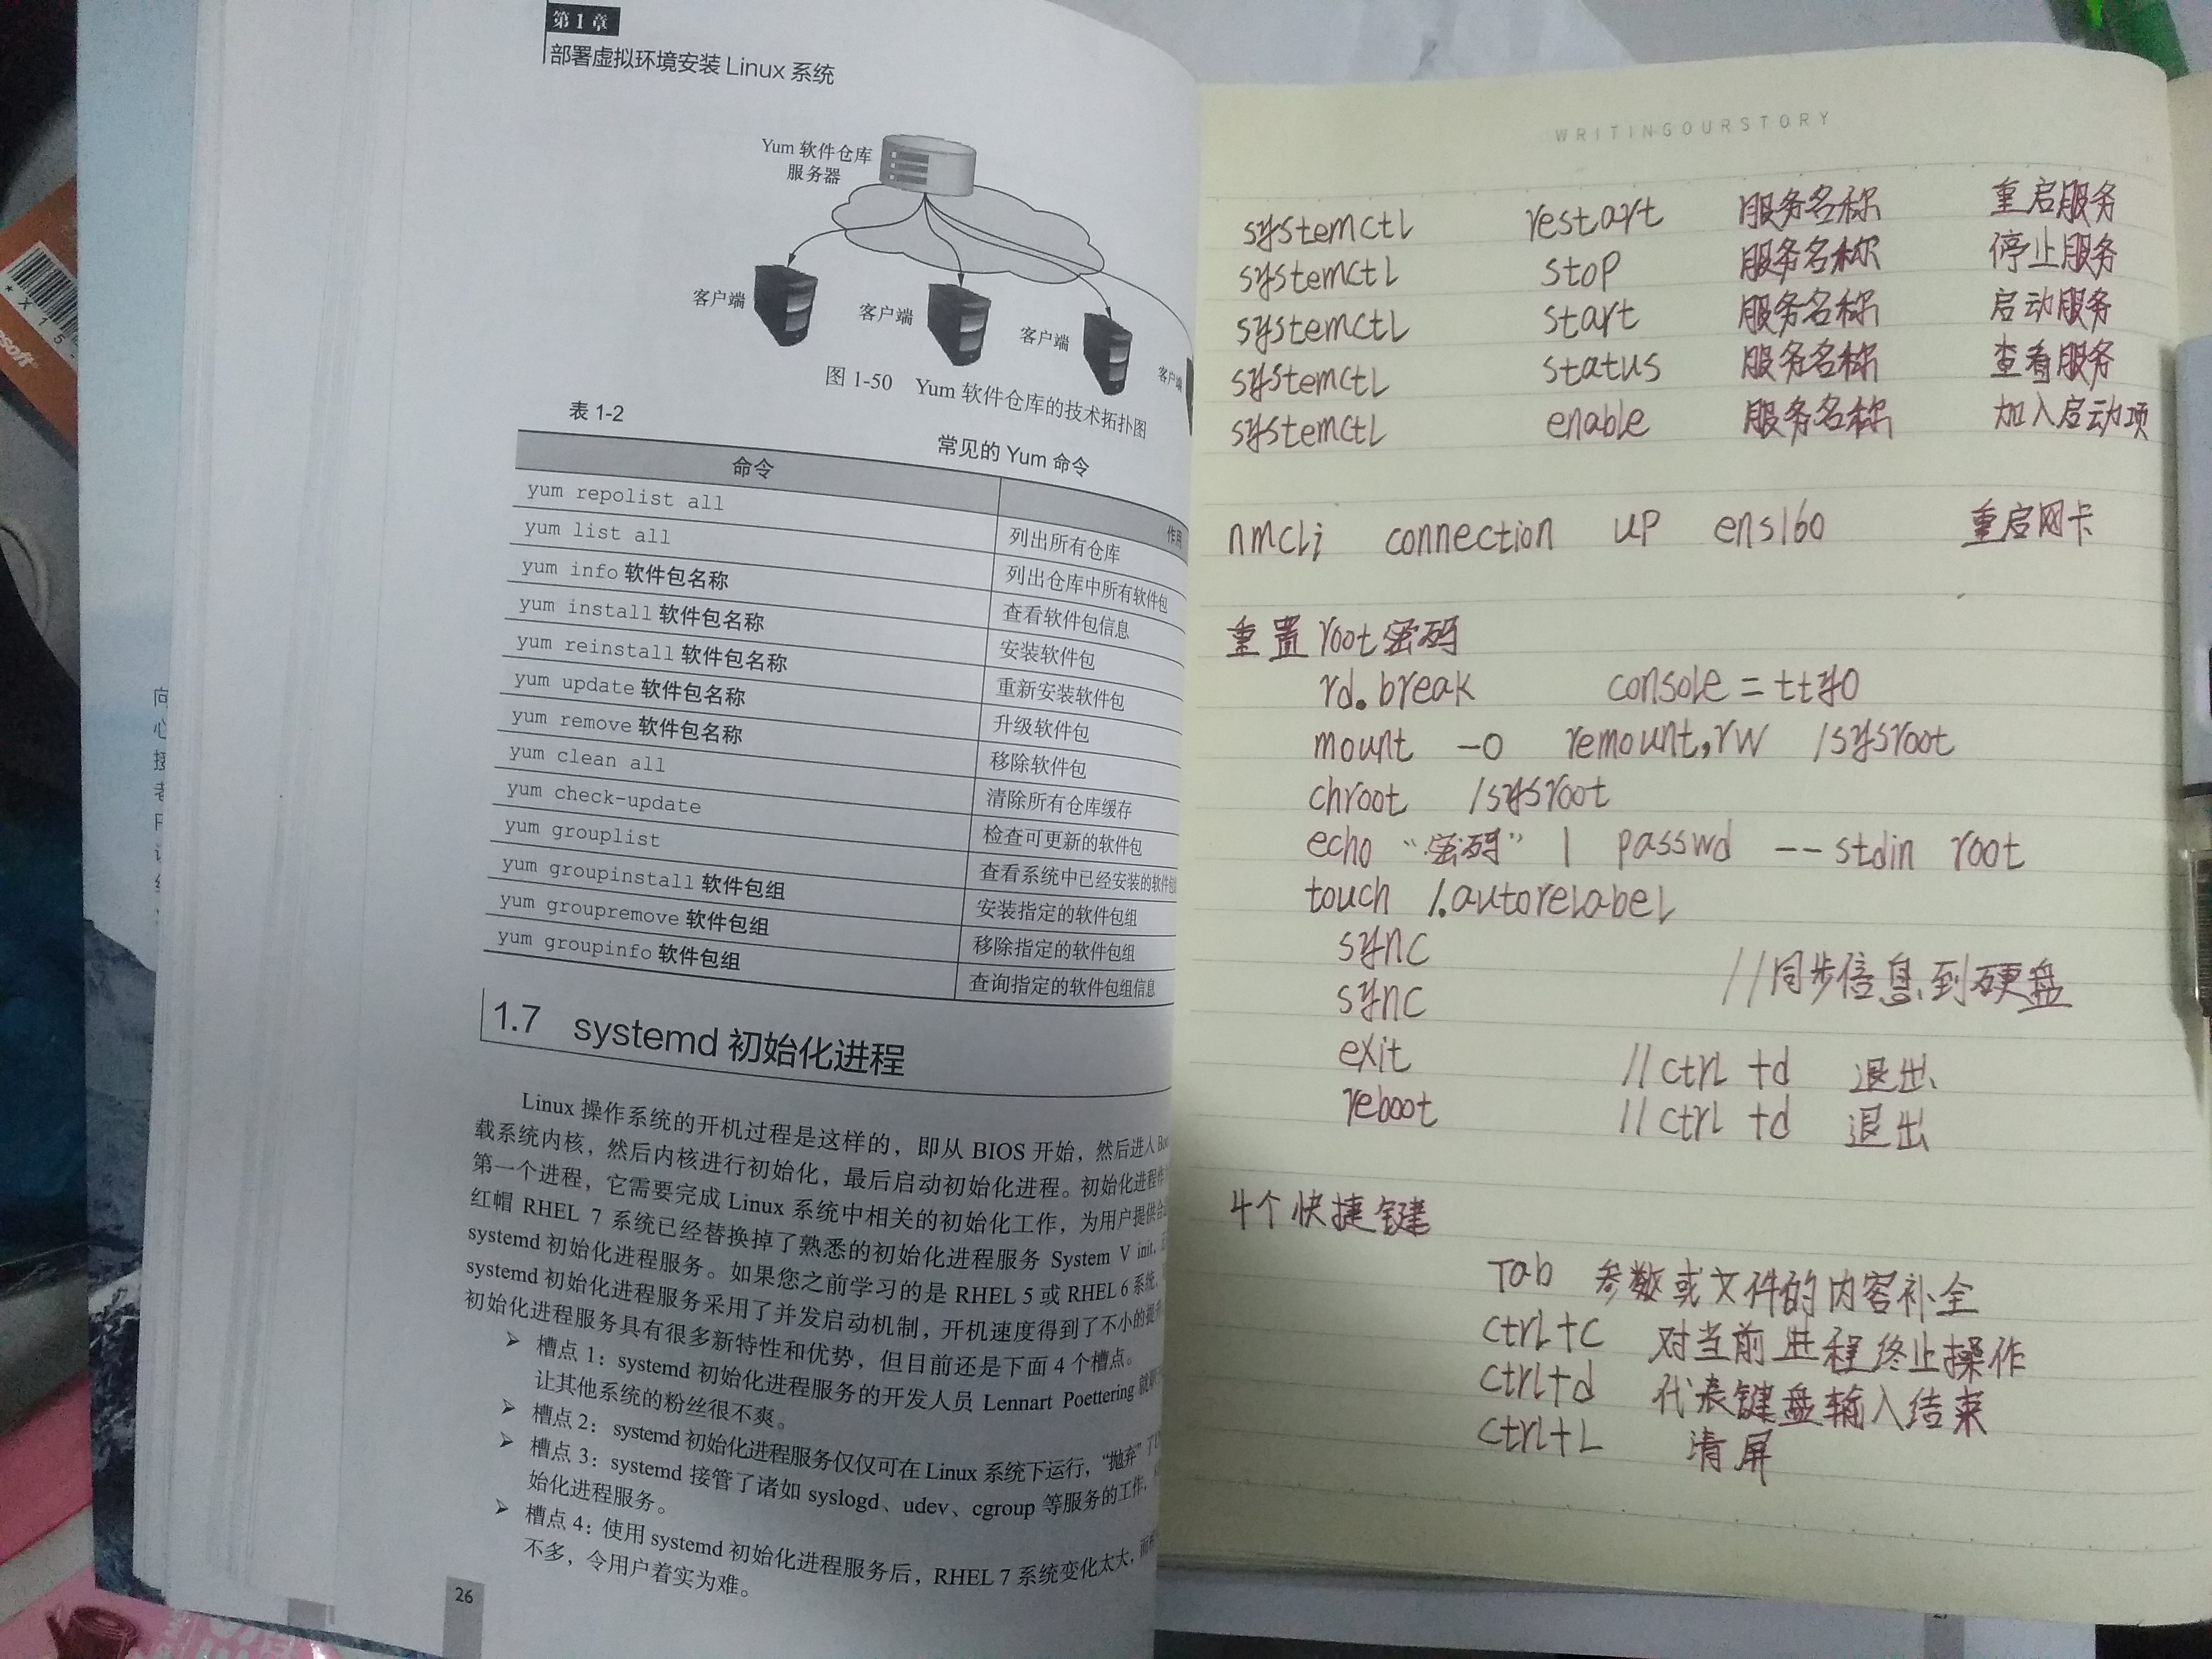 第1章
部署虚拟环境安装 Linux 系统
Yum 软件仓库
服务器
客户端
客户端
客户端
客户端
图 1-50 Yum 软件仓库的技术拓扑图
表 1-2
常见的 Yum 命令
命令 作用
yum repolist all 列出所有仓库
yum list all 列出仓库中所有软件包
yum info 软件包名称 查看软件包信息
yum install 软件包名称 安装软件包
yum reinstall 软件包名称 重新安装软件包
yum update 软件包名称 升级软件包
yum remove 软件包名称 移除软件包
yum clean all 清除所有仓库缓存
yum check-update 检查可更新的软件包
yum grouplist 查看系统中已经安装的软件包
yum groupinstall 软件包组 安装指定的软件包组
yum groupremove 软件包组 移除指定的软件包组
yum groupinfo 软件包组 查询指定的软件包组信息
1.7 systemd 初始化进程
Linux 操作系统的开机过程是这样的，即从 BIOS 开始，然后进入
载系统内核，然后内核进行初始化，最后启动初始化进程。初始化进程作
第一个进程，它需要完成 Linux 系统中相关的初始化工作，为用户提供合
红帽 RHEL 7 系统已经替换掉了熟悉的初始化进程服务 System V init，
systemd 初始化进程服务。如果您之前学习的是 RHEL 5 或 RHEL 6 系统，
systemd 初始化进程服务采用了并发启动机制，开机速度得到了不小的提
初始化进程服务具有很多新特性和优势，但目前还是下面 4 个槽点。
➢ 槽点 1：systemd 初始化进程服务的开发人员 Lennart Poettering 就
让其他系统的粉丝很不爽。
➢ 槽点 2：systemd 初始化进程服务仅仅可在 Linux 系统下运行，“抛弃”了
➢ 槽点 3：systemd 接管了诸如 syslogd、udev、cgroup 等服务的工作，
始化进程服务。
➢ 槽点 4：使用 systemd 初始化进程服务后，RHEL 7 系统变化太大，而
不多，令用户着实为难。
26
WRITINGOURSTORY
systemctl restart 服务名称 重启服务
systemctl stop 服务名称 停止服务
systemctl start 服务名称 启动服务
systemctl status 服务名称 查看服务
systemctl enable 服务名称 加入启动项
nmcli connection up ens160 重启网卡
重置root密码
rd.break console=tty0
mount -o remount,rw /sysroot
chroot /sysroot
echo “密码” | passwd --stdin root
touch /.autorelabel
sync
sync //同步信息到硬盘
exit //ctrl+d 退出
reboot //ctrl+d 退出
4个快捷键
Tab 参数或文件的内容补全
ctrl+c 对当前进程终止操作
ctrl+d 代表键盘输入结束
ctrl+L 清屏